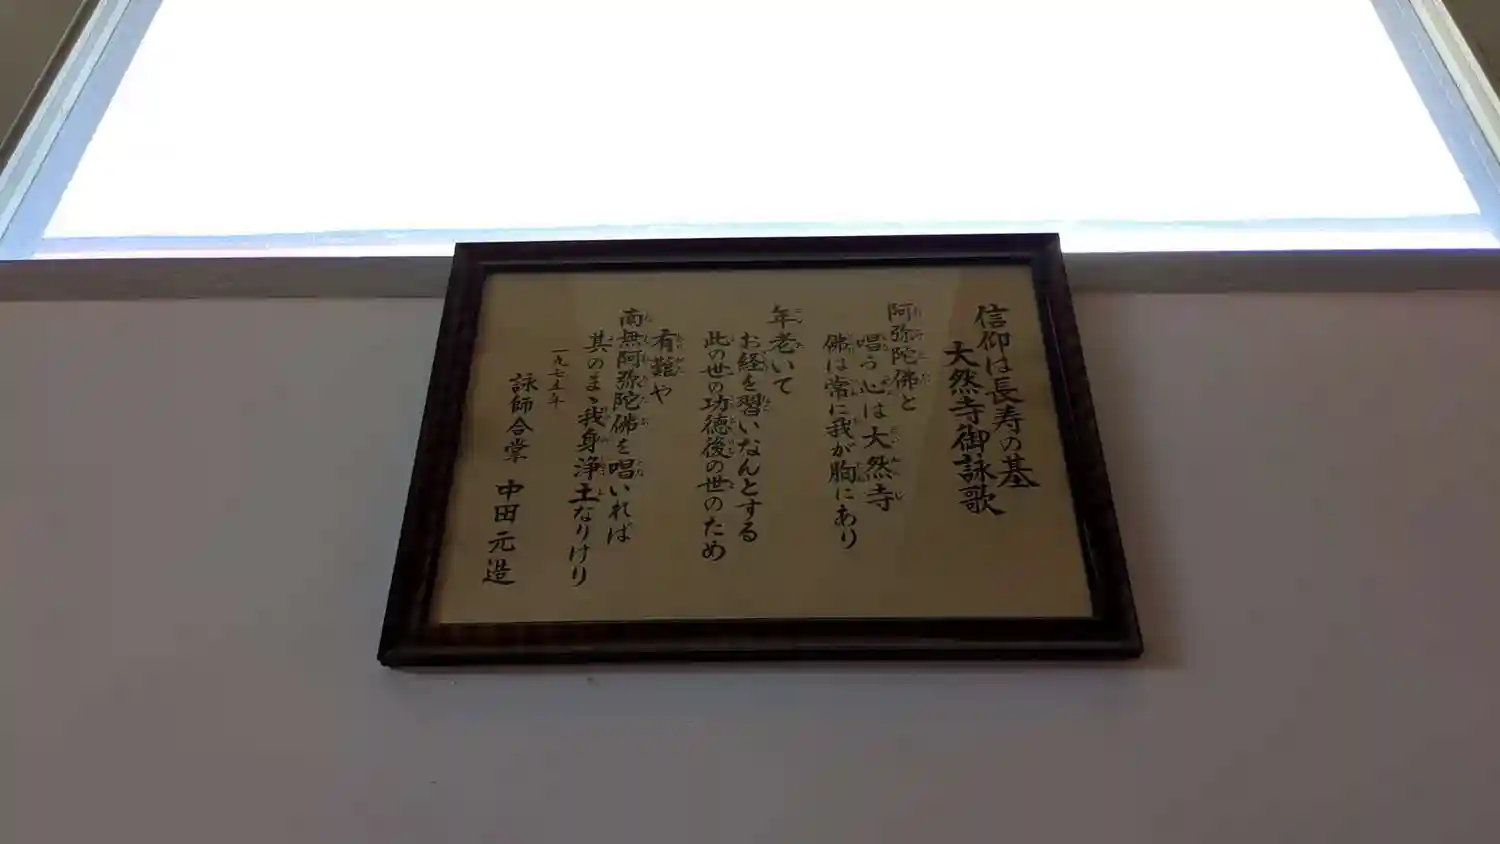 信仰は長寿の基
大然寺御詠歌
阿弥陀佛と
唱う心は大然寺
佛は常に我が胸にあり
年老いて
お経を習いなんとする
此の世の功徳後の世のため
有難や
南無阿弥陀佛を唱いれば
其のまゝ我身浄土なりけり
一九七五年
詠師合掌 中田元造